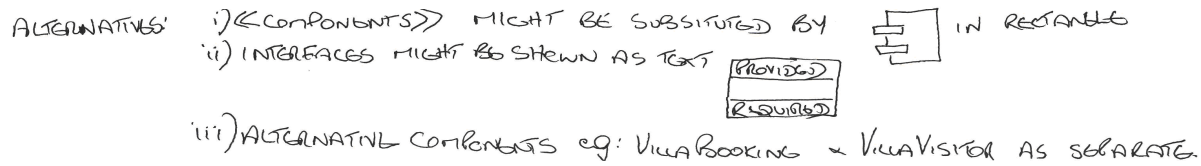 ALTERNATIVES: i) <<COMPONENTS>> MIGHT BE SUBSITUTED BY IN RECTANGLE
ii) INTERFACES MIGHT BE SHEWN AS TEXT
PROVIDED
REQUIRED
iii) ALTERNATIVE COMPONENTS eg: VILLABOOKING & VILLAVISITOR AS SEPARATE.